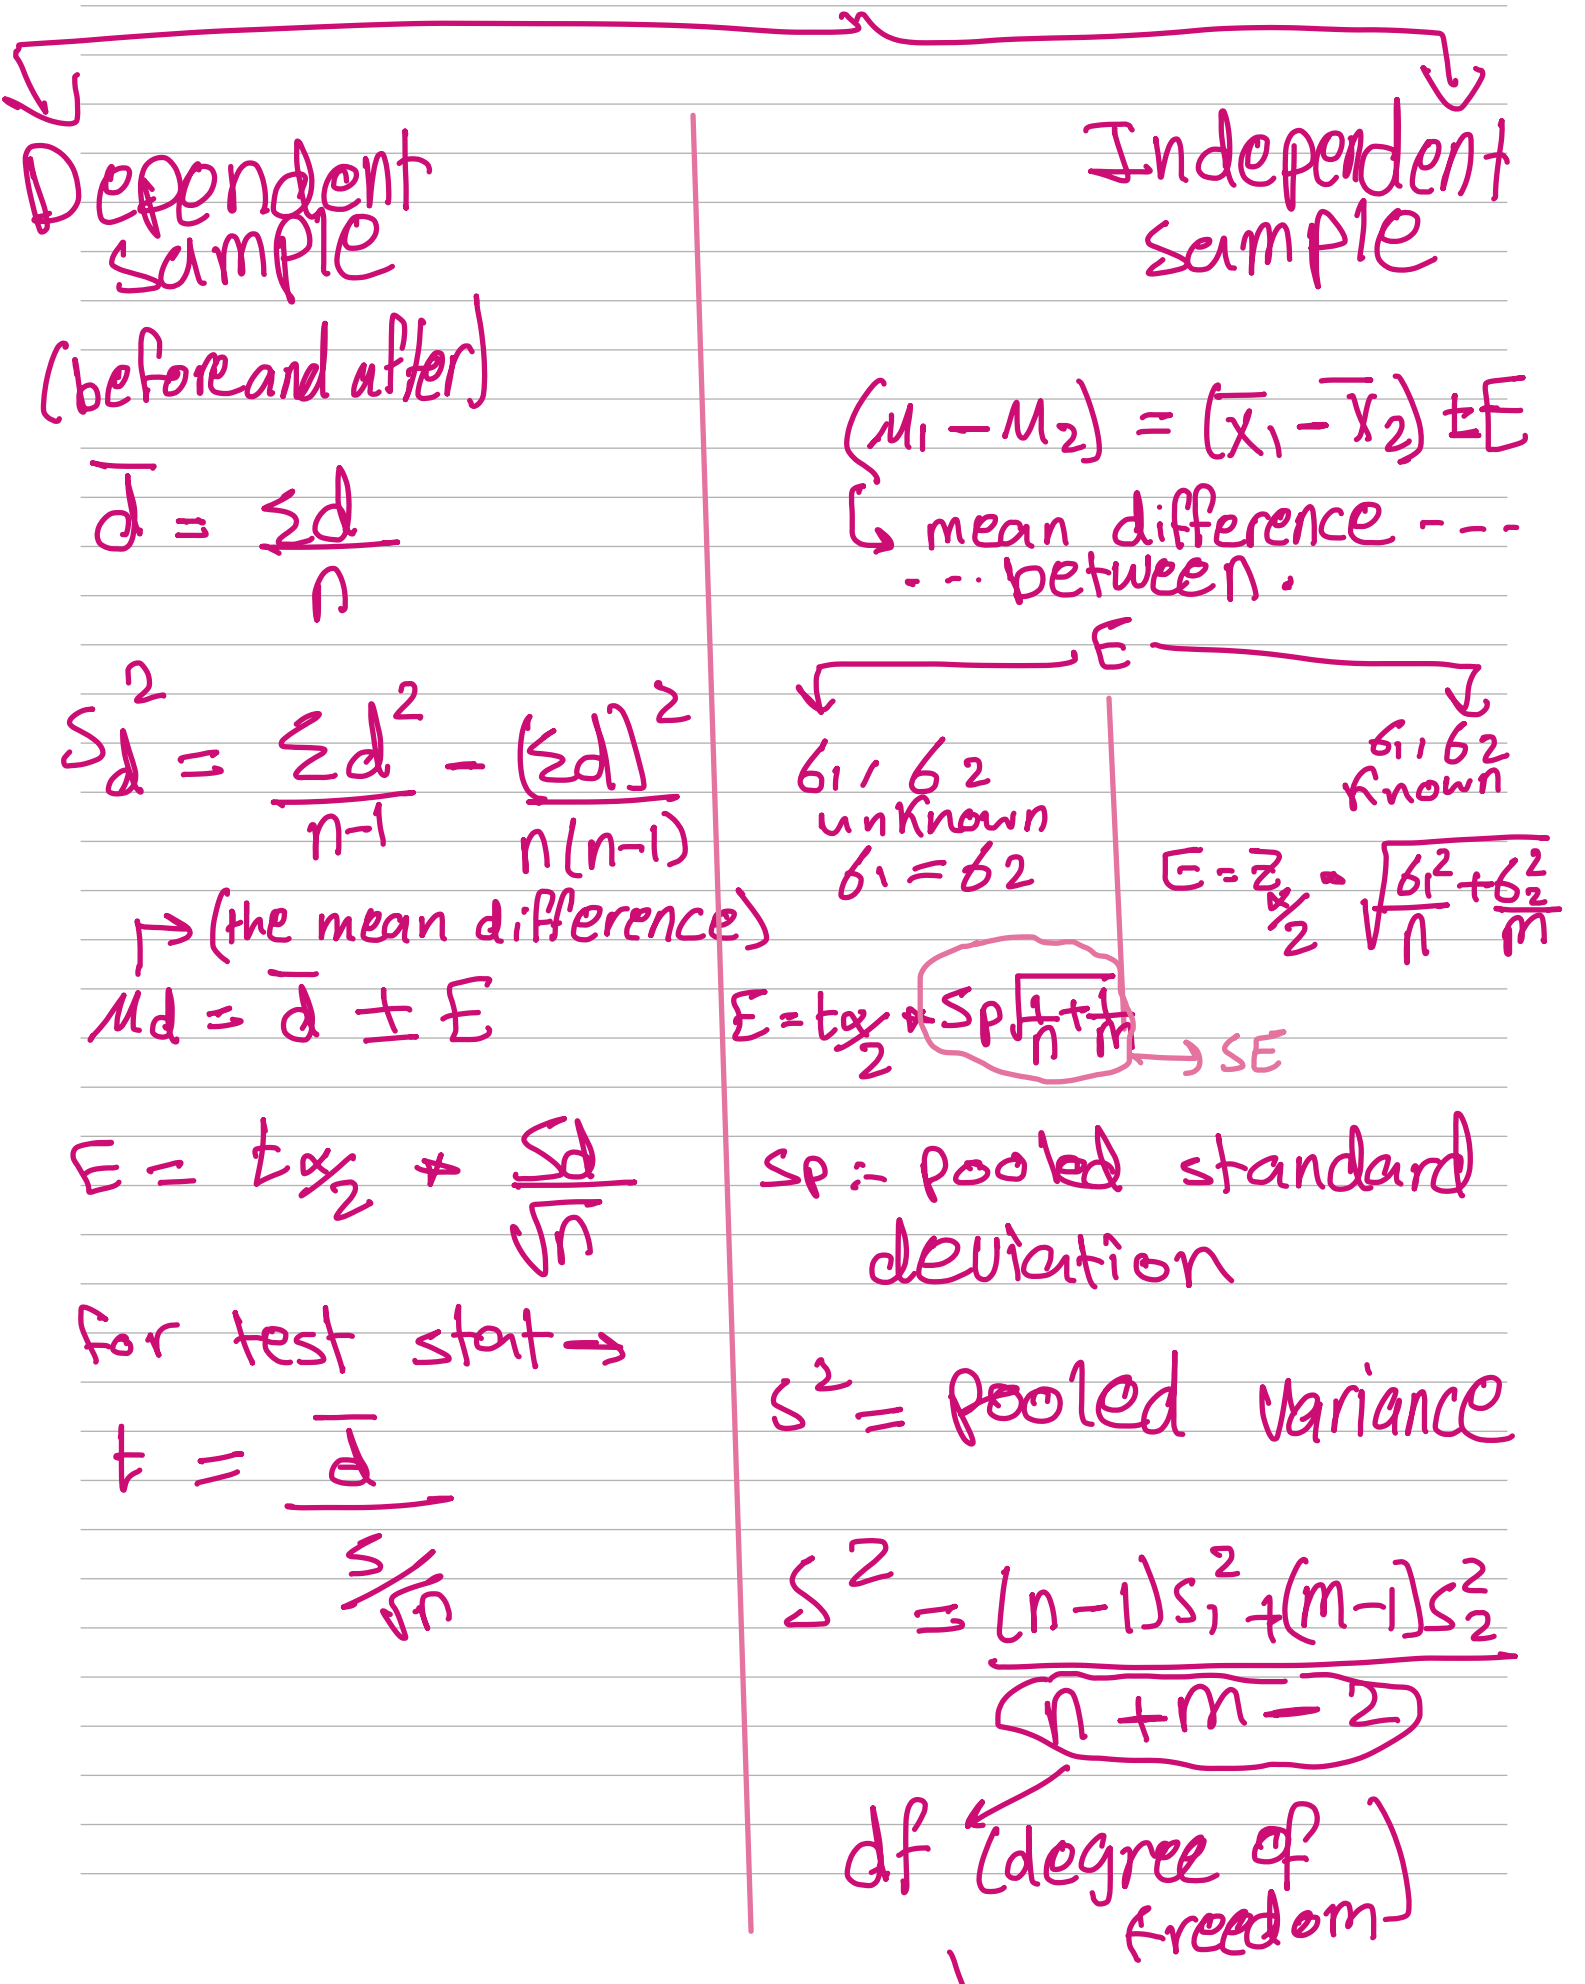 Dependent
sample
(before and after)
d̄ = Σd / n
Sd² = Σd² / (n-1) - (Σd)² / n(n-1)
↱ (the mean difference)
Md = d̄ ± E
E = tα/2 * Sd / √n
for test stat →
t = d̄ / (s/√n)
Independent
sample
(M1 - M2) = (x̄1 - x̄2) ± E
↳ mean difference ----
---- between.
E
σ1, σ2
unknown
σ1 = σ2
E = tα/2 * Sp √(1/n + 1/m) → SE
σ1, σ2
known
E = Zα/2 * √(σ1²/n + σ2²/m)
Sp :- pooled standard
deviation
S² = pooled variance
S² = (n-1)S1² + (m-1)S2² / n + m - 2
df (degree of
freedom)